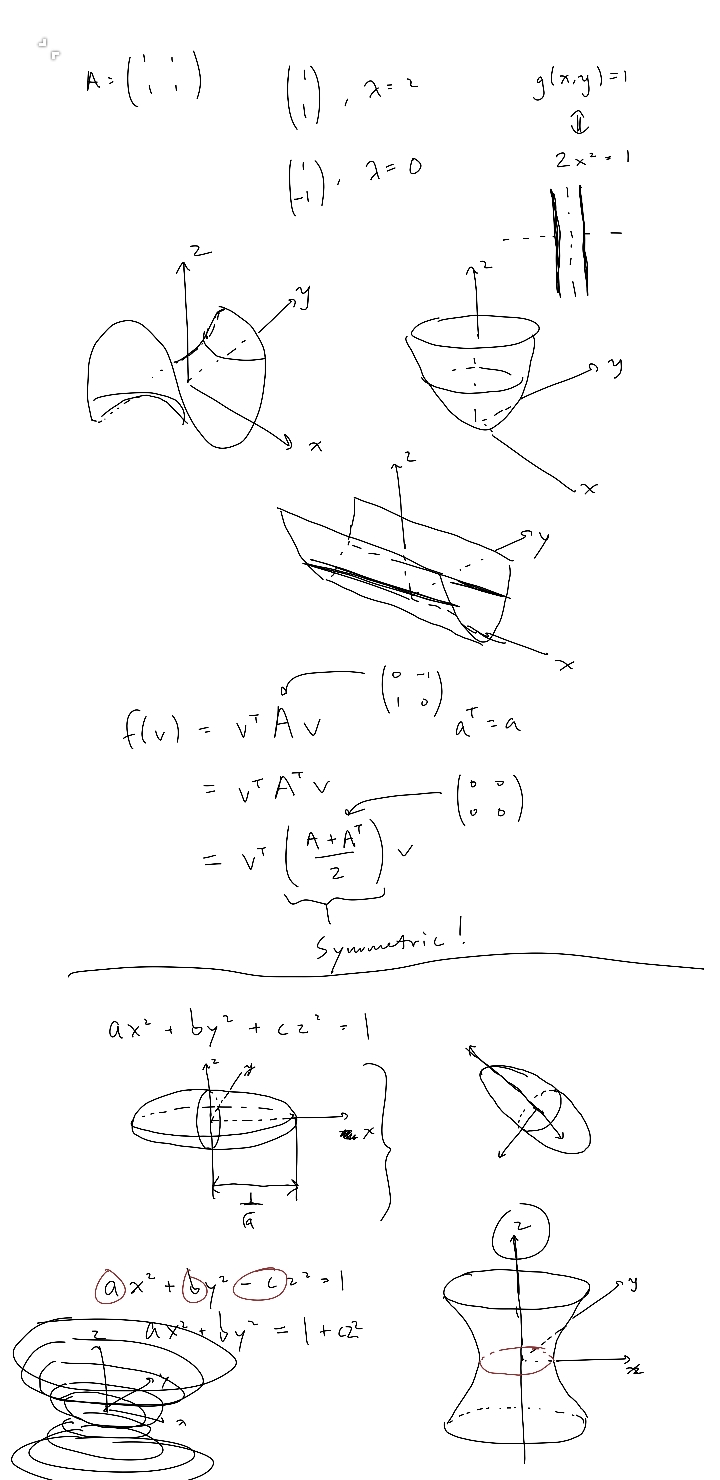 A = ( 1 1 ; 1 1 )
( 1 ; 1 ) , λ = 2
g(x,y) = 1
⇕
( 1 ; -1 ) , λ = 0
2x² = 1
z
y
x
z
y
x
z
y
x
f(v) = vᵀ A v
( 0 -1 ; 1 0 )
aᵀ = a
= vᵀ Aᵀ v
( 0 0 ; 0 0 )
= vᵀ ( (A + Aᵀ) / 2 ) v
Symmetric !
ax² + by² + cz² = 1
z
y
x
1/√a
ax² + by² - cz² = 1
ax² + by² = 1 + cz²
z
y
x
z
y
x